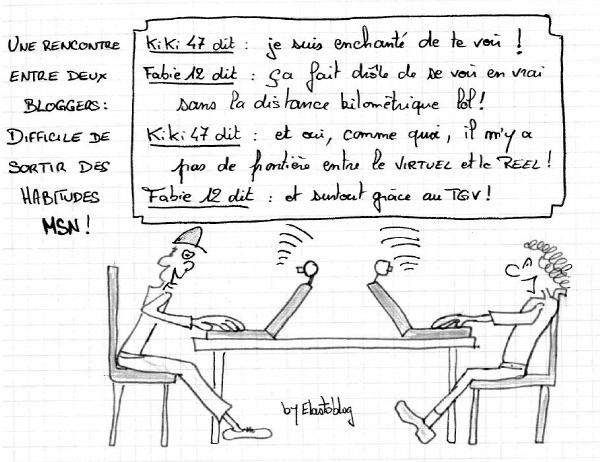 UNE RENCONTRE
ENTRE DEUX
BLOGGERS :
DIFFICILE DE
SORTIR DES
HABITUDES
MSN !
KiKi 47 dit : je suis enchanté de te voir !
Fabie 12 dit : ça fait drôle de se voir en vrai
sans la distance kilométrique lol !
KiKi 47 dit : et oui, comme quoi, il n'y a
pas de frontière entre le VIRTUEL et le REEL !
Fabie 12 dit : et surtout grâce au TGV !
by Elastoblog